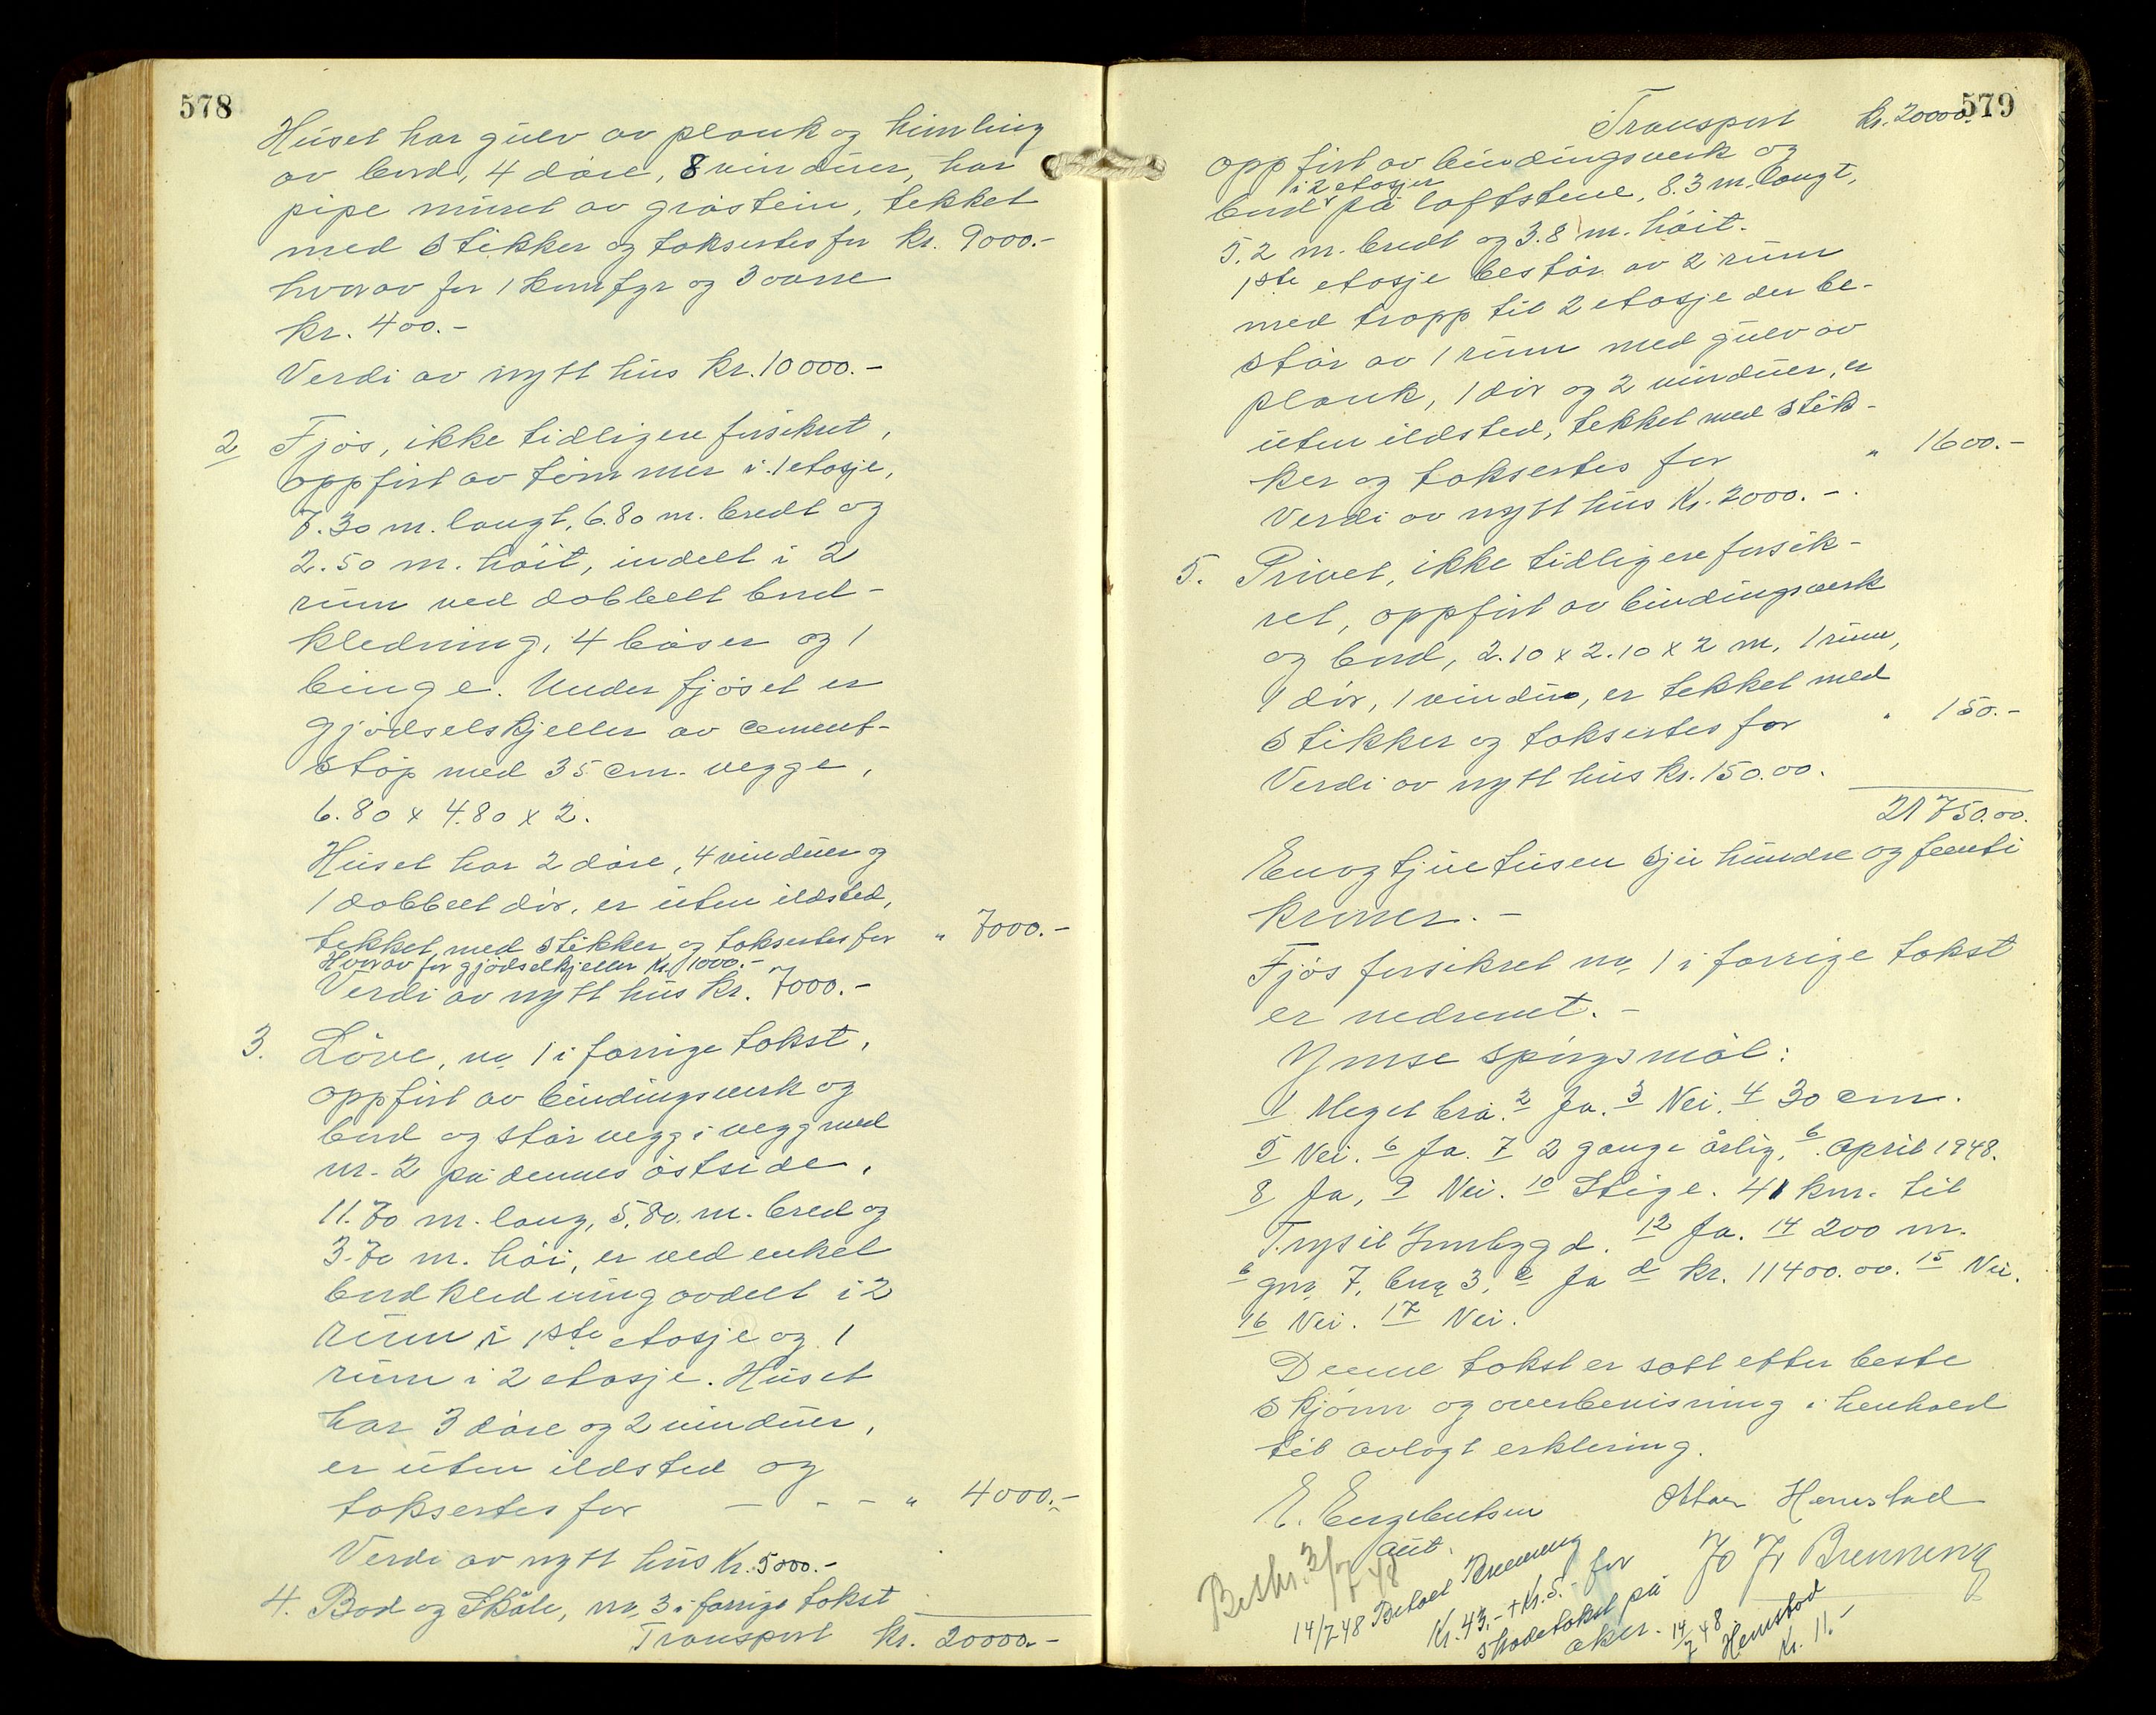 578
Huset har gulv av plank og himling
av bord, 4 döre, 8 vinduer, har
pipe muret av gråstein, tekket
med stikker og taksertes for kr. 9000.-
hvorav for 1 komfyr og 3 ovne
kr. 400.-
Verdi av nytt hus kr. 10000.-
2 Fjös, ikke tidligere forsikret,
oppfört av tömmer i 1 etasje,
7.30 m. langt, 6.80 m. bredt og
2.50 m. höit, indelt i 2
rum ved dobbelt bord-
kledning, 4 båser og 1
binge. Under fjöset er
gjödselskjeller av cement-
stöp med 35 cm. vegge,
6.80 x 4.80 x 2.
Huset har 2 döre, 4 vinduer og
1 dobbelt dör, er uten ildsted,
tekket med stikker og taksertes for " 7000.-
Hvorav for gjödselkjeller kr. 1000.-
Verdi av nytt hus kr. 7000.-
3. Löve, nr. 1 i forrige takst,
oppfört av bindingsverk og
bord og står vegg i vegg med
nr. 2 på dennes östside,
11.70 m. lang, 5.80 m. bred og
3.70 m. höi, er ved enkel
bordkledning avdelt i 2
rum i 1ste etasje og 1
rum i 2 etasje. Huset
har 3 döre og 2 vinduer,
er uten ildsted og
taksertes for - - - " 4000.-
Verdi av nytt hus kr. 5000.-
4. Bod og Skåle, nr. 3 i forrige takst
Transport kr. 20000.-
579
Transport kr. 20000.-
oppfört av bindingsverk og
i 2 etasjer
bord på loftstene, 8.3 m. langt,
5.2 m. bredt og 3.8 m. höit.
1ste etasje består av 2 rum
med trapp til 2 etasje der be-
står av 1 rum med gulv av
plank, 1 dör og 2 vinduer, er
uten ildsted, tekket med stik-
ker og taksertes for " 1600.-
Verdi av nytt hus kr. 2000.-
5. Privet, ikke tidligere forsik-
ret, oppfört av bindingsverk
og bord, 2.10 x 2.10 x 2 m, 1 rum,
1 dör, 1 vindu, er tekket med
stikker og taksertes for " 150.-
Verdi av nytt hus kr. 150.00.
21750.00.
Enogtjuetusen sju hundre og femti
kroner.-
Fjös forsikret nr. 1 i forrige takst
er nedrevet.-
Ymse spörgsmål:
1 Meget bra. 2 Ja. 3 Nei. 4 30 cm.
5 Nei. 6 Ja. 7 2 gange årlig, b. april 1948.
8 Ja, 9 Nei. 10 Stige. 41 km. til
Trysil Innbygd. 12 Ja. 14 200 m.
b gnr. 7, bnr. 3, c Ja d kr. 11400.00. 15 Nei.
16 Nei. 17 Nei.
Denne takst er satt etter beste
skjönn og overbevisning i henhold
til avlagt erklering.
E. Engebretsen Ottar Hemstad
aut. Jo Jr Brenneng
Beskr. 3/7 48
14/7 48 Betalt Brenneng
kr. 43,- + kr. 5.- for
skadetakst på
aker. 14/7 48 Hemstad
kr. 11.-